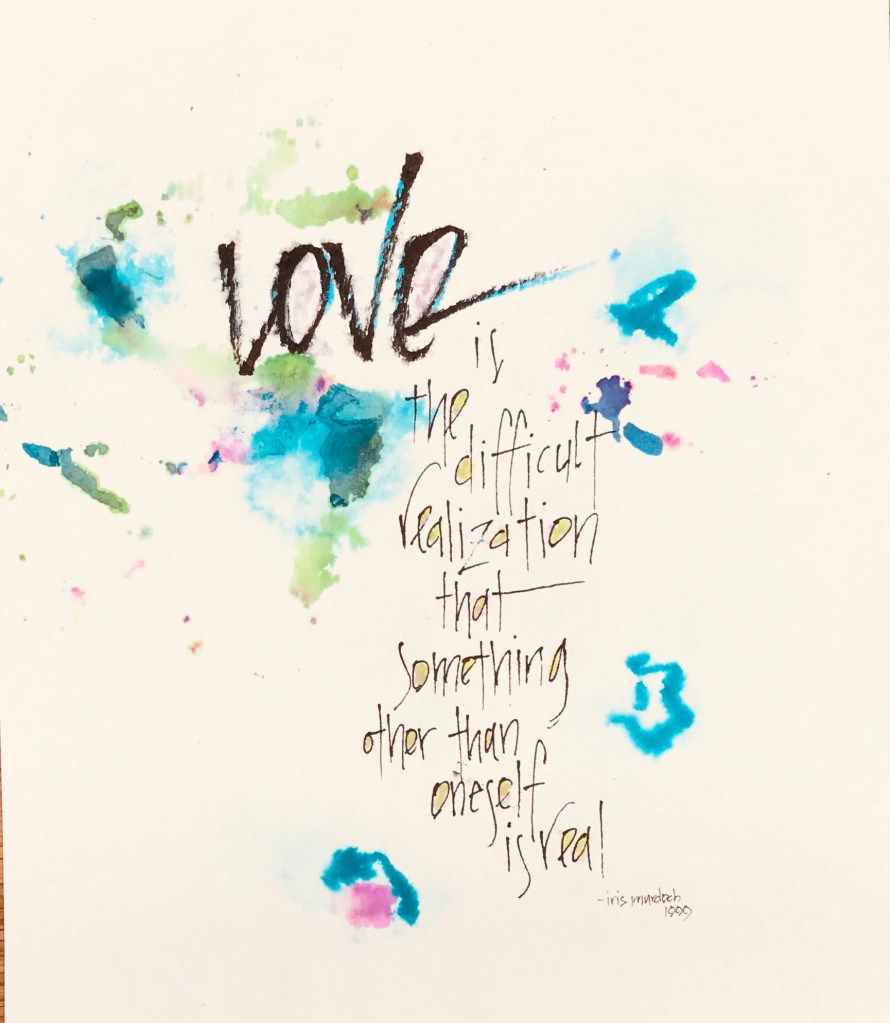 love
is
the
difficult
realization
that
something
other than
oneself
is real
-iris murdoch
1999